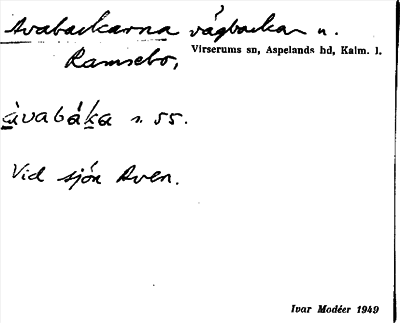 Avabackarna vägbackar n.
Ramsebo, Virserums sn, Aspelands hd, Kalm. l.
àvabáka s. 55.
Vid sjön Aven.
Ivar Modéer 1949